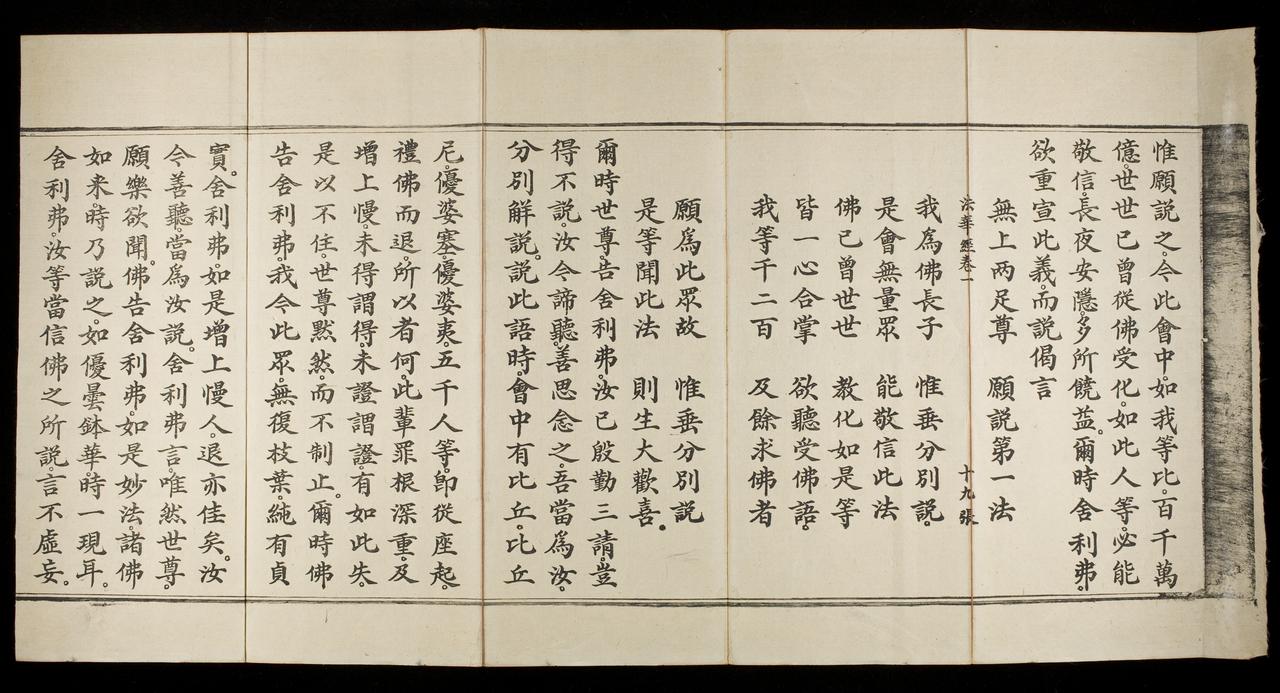 惟願説之。今此會中。如我等比。百千萬
億。世世已曾從佛受化。如此人等。必能
敬信。長夜安隱。多所饒益。爾時舍利弗。
欲重宣此義。而説偈言
無上兩足尊　願説第一法
法華經卷一　十九張
我爲佛長子　惟垂分別説。
是會無量眾　能敬信此法
佛已曾世世　教化如是等
皆一心合掌　欲聽受佛語。
我等千二百　及餘求佛者
願爲此眾故　惟垂分別説
是等聞此法　則生大歡喜。
爾時世尊。告舍利弗汝已殷勤三請。豈
得不説。汝今諦聽。善思念之。吾當爲汝。
分別解説。説此語時。會中有比丘。比丘
尼。優婆塞。優婆夷。五千人等。卽從座起。
禮佛而退。所以者何。此輩罪根深重。及
增上慢。未得謂得。未證謂證。有如此失。
是以不住。世尊默然。而不制止。爾時佛
告舍利弗。我今此眾。無復枝葉。純有貞
實。舍利弗。如是增上慢人。退亦佳矣。汝
今善聽。當爲汝説。舍利弗言。唯然世尊。
願樂欲聞。佛告舍利弗。如是妙法。諸佛
如来。時乃説之。如優曇鉢華。時一現耳。
舍利弗。汝等當信佛之所説。言不虛妄。